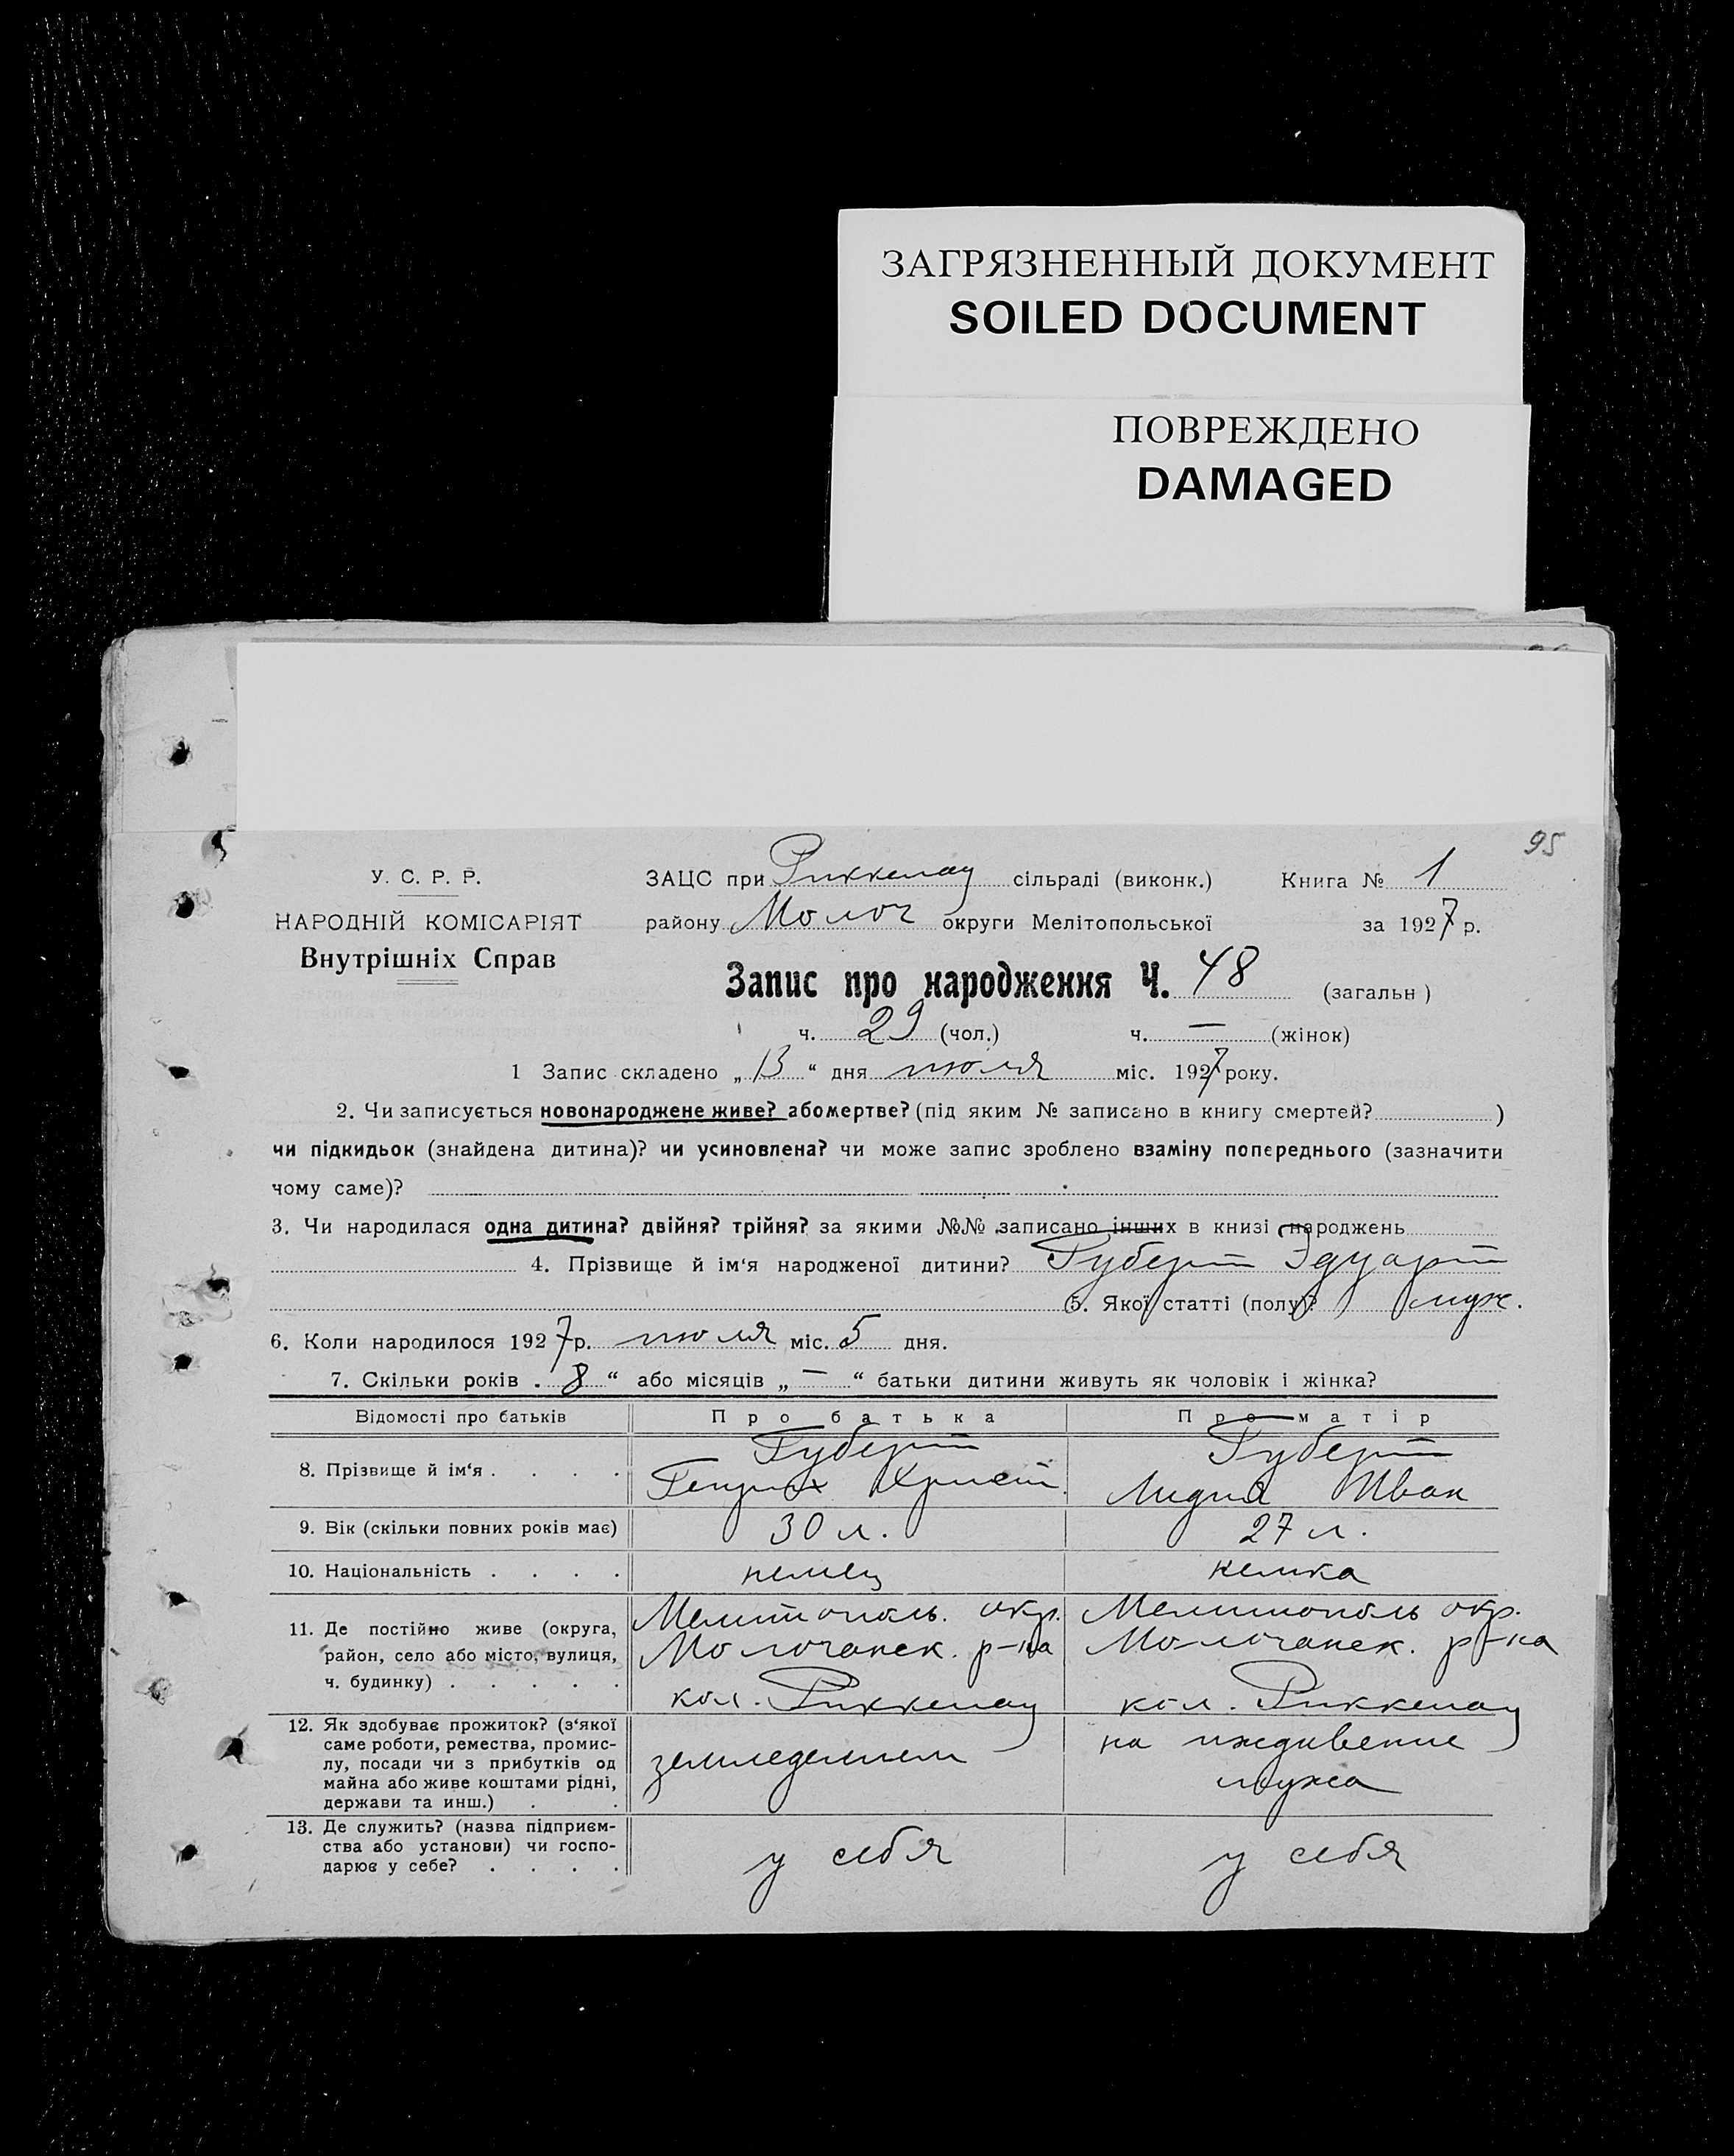 ЗАГРЯЗНЕННЫЙ ДОКУМЕНТ
SOILED DOCUMENT
ПОВРЕЖДЕНО
DAMAGED
95
У. С. Р. Р.
НАРОДНІЙ КОМІСАРІЯТ
Внутрішніх Справ
ЗАЦС при Риккенау сільраді (виконк.) Книга № 1
району Молоч округи Мелітопольської за 1927 р.
Запис про народження Ч. 48 (загальн )
ч. 29 (чол.) ч. — (жінок)
1 Запис складено „13“ дня июля міс. 1927 року.
2. Чи записується новонароджене живе? або мертве? (під яким № записано в книгу смертей? )
чи підкидьок (знайдена дитина)? чи усиновлена? чи може запис зроблено взаміну попереднього (зазначити
чому саме)?
3. Чи народилася одна дитина? двійня? трійня? за якими №№ записано інших в книзі народжень
4. Прізвище й ім‘я народженої дитини? Губерт Эдуарт
5. Якої статті (полу)? муж.
6. Коли народилося 1927 р. июля міс. 5 дня.
7. Скільки років „8“ або місяців „—“ батьки дитини живуть як чоловік і жінка?
Відомості про батьків Про батька Про матір
8. Прізвище й ім‘я . . . . Губерт Генрих Христ. Губерт Лидия Иван
9. Вік (скільки повних років має) 30 л. 27 л.
10. Національність . . . . немец немка
11. Де постійно живе (округа, Мелитополь. окр. Мелитополь окр.
район, село або місто, вулиця, Молочанск. р-на Молочанск. р-на
ч. будинку) . . . . . кол. Риккенау кол. Риккенау
12. Як здобуває прожиток? (з‘якої
саме роботи, ремества, промис-
лу, посади чи з прибутків од
майна або живе коштами рідні,
держави та инш.) . .
земледелием на иждивение мужа
13. Де служить? (назва підприєм-
ства або установи) чи госпо-
дарює у себе? . . . .
у себя у себя